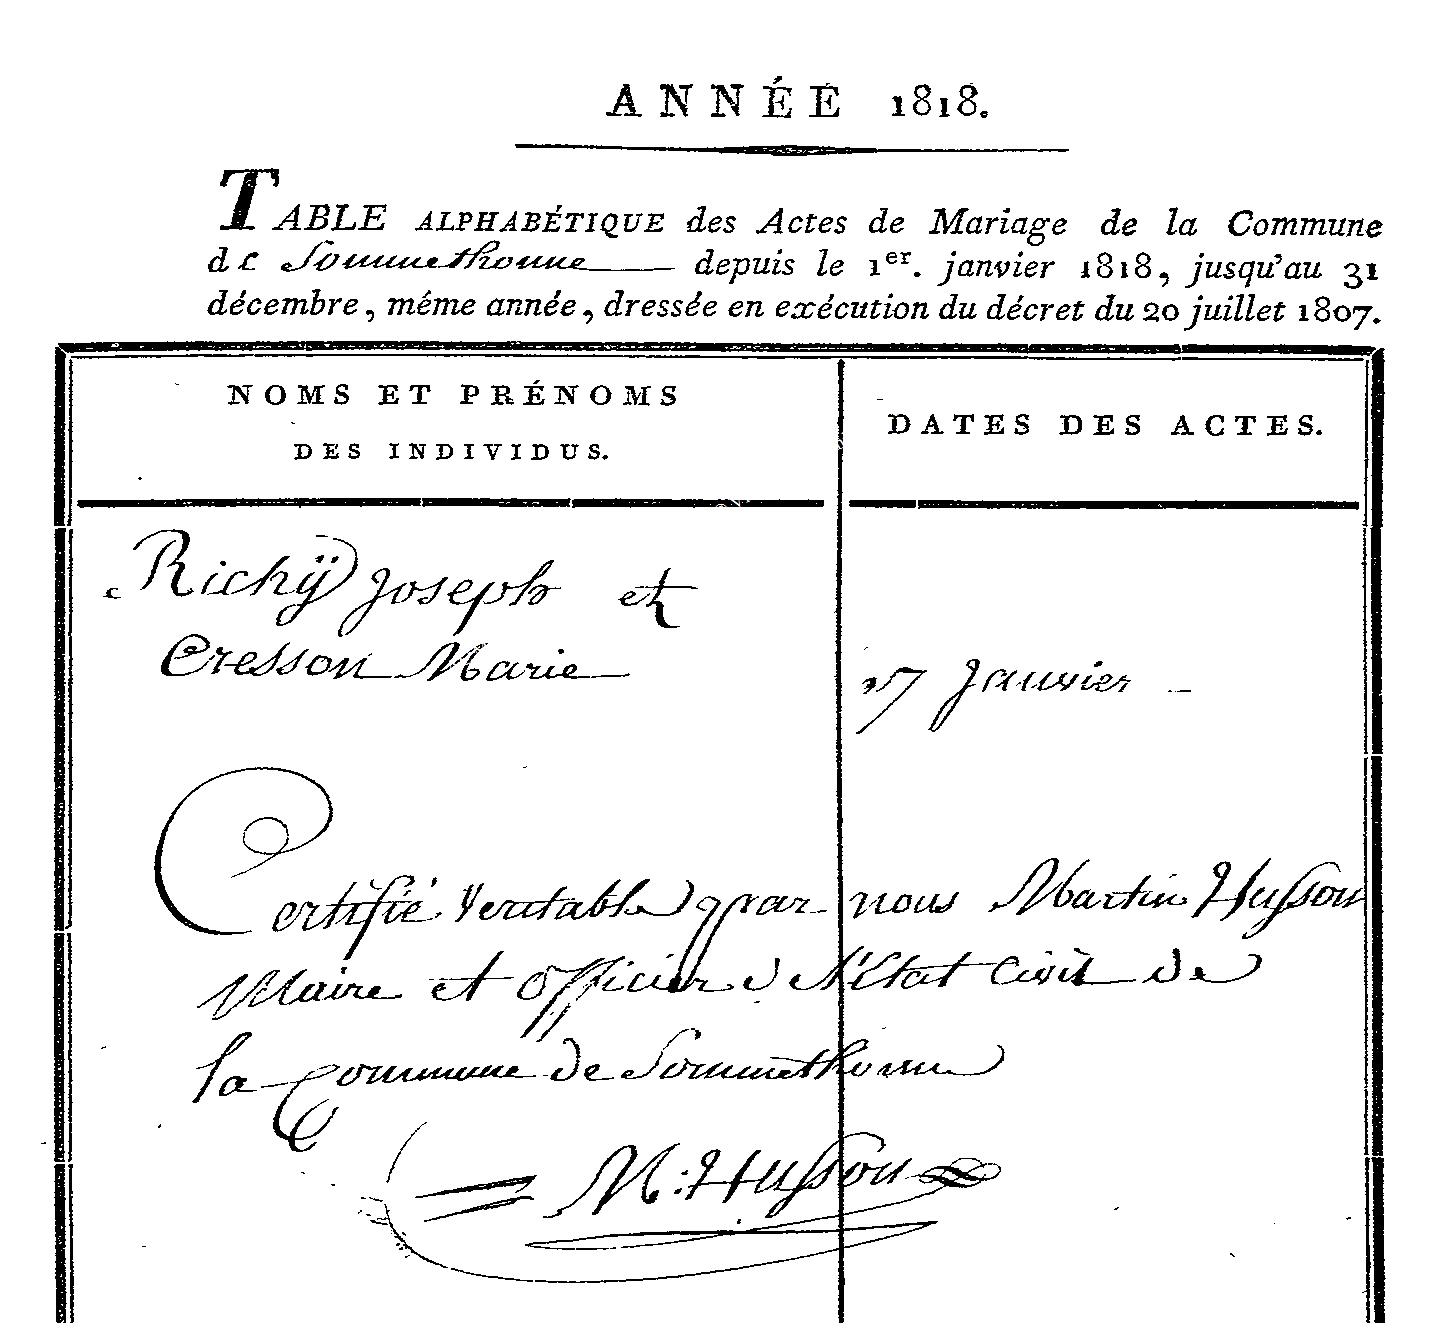 ANNÉE 1818.
TABLE ALPHABÉTIQUE des Actes de Mariage de la Commune
de Sommethonne depuis le 1er. janvier 1818, jusqu'au 31
décembre, même année, dressée en exécution du décret du 20 juillet 1807.
NOMS ET PRÉNOMS
DES INDIVIDUS.
DATES DES ACTES.
Richÿ Joseph et
Cresson Marie
17 Janvier
Certifié Veritable par nous Martin Husson
Maire et officier de l'état Civil de
la Commune de Sommethonne
M: Husson